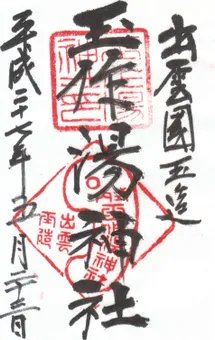 出雲國玉造
玉作湯神社
平成二十七年五月二十三日
出雲
玉造